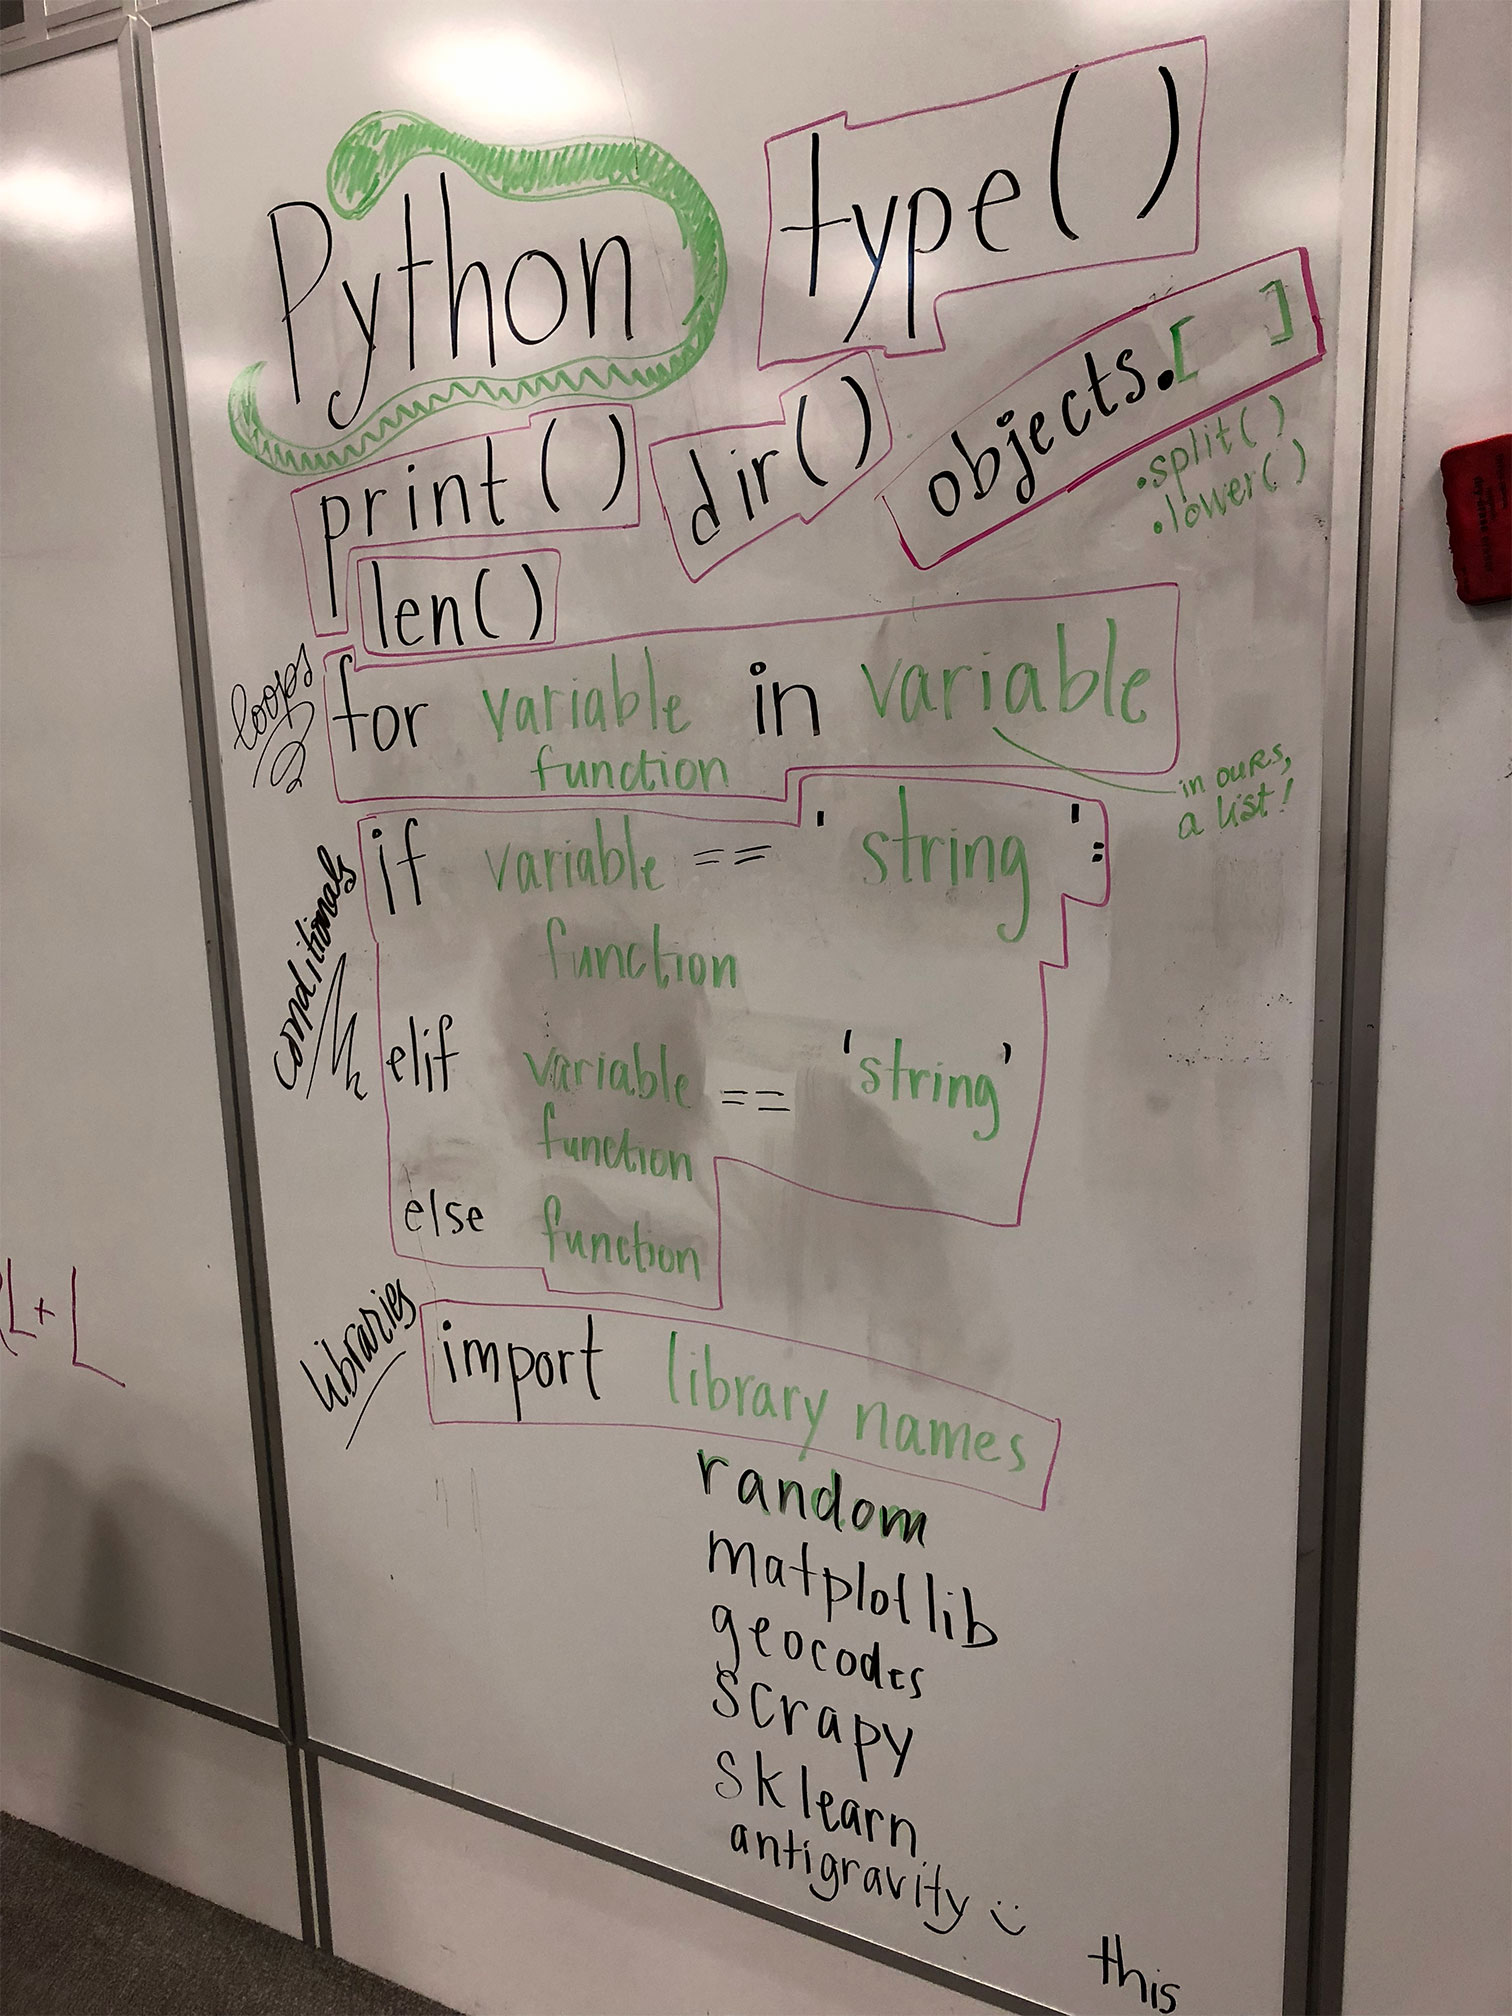 Python
type()
print()
dir()
objects.[ ]
.split()
.lower()
len()
loops
for variable in variable
function
in ours,
a list!
conditionals
if variable == 'string':
function
elif variable == 'string'
function
else function
libraries
import library names
random
matplotlib
geocodes
scrapy
sklearn
antigravity
this
L+L